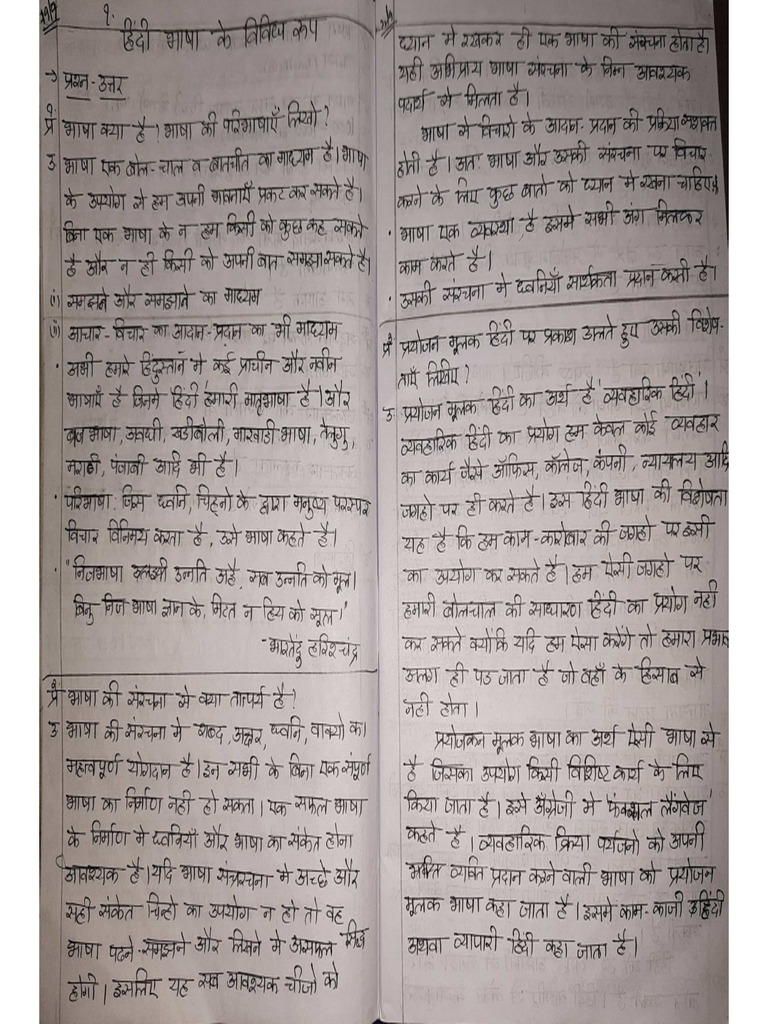 १.
हिंदी भाषा के विविध रूप
→ प्रश्न-उत्तर
प्र॑ भाषा क्या है? भाषा की परिभाषाएँ लिखो?
उ भाषा एक बोल-चाल व बातचीत का माध्यम है। भाषा
के उपयोग से हम अपनी भावनाएँ प्रकट कर सकते है।
बिना एक भाषा के न हम किसी को कुछ कह सकते
है और न ही किसी को अपनी बात समझा सकते है।
(i) समझने और समझाने का माध्यम
(ii) आचार-विचार का आदान-प्रदान का भी माध्यम
• अभी हमारे हिंदुस्तान मे कई प्राचीन और नवीन
भाषाएँ है जिनमे हिंदी हमारी मातृभाषा है। और
ब्रज भाषा, अवधी, खडीबोली, मारवाडी भाषा, तेलुगु,
मराठी, पंजाबी आदि भी है।
• परिभाषा: जिस ध्वनि, चिह्नो के द्वारा मनुष्य परस्पर
विचार विनिमय करता है, उसे भाषा कहते है।
• "निजभाषा उन्नति अहै, सब उन्नति को मूल।
बिनु निज भाषा ज्ञान के, मिटत न हिय को सूल।"
- भारतेंदु हरिश्चंद्र
प्र॑ भाषा की संरचना से क्या तात्पर्य है?
उ भाषा की संरचना मे शब्द, अक्षर, ध्वनि, वाक्यो का
महत्वपूर्ण योगदान है। इन सभी के बिना एक संपूर्ण
भाषा का निर्माण नही हो सकता। एक सफल भाषा
के निर्माण मे ध्वनियाँ और भाषा का संकेत होना
आवश्यक है। यदि भाषा संरचना मे अच्छे और
सही संकेत चिन्हो का उपयोग न हो तो वह
भाषा पढने-समझने और लिखने मे असफल सिद्ध
होगी। इसलिए यह सब आवश्यक चीजो को
ध्यान मे रखकर ही एक भाषा की संरचना होता है।
यही अभिप्राय भाषा संरचना के बिना आवश्यक
पदार्थ से मिलता है।
भाषा मे विचारो के आदान-प्रदान की प्रक्रिया सशक्त
होती है। अतः भाषा और उसकी संरचना पर विचार
करने के लिए कुछ बातो को ध्यान मे रखना चाहिए।
• भाषा एक व्यवस्था है इसमे सभी अंग मिलकर
काम करते है।
• उसकी संरचना मे ध्वनियाँ सार्थकता प्रदान करती है।
प्र॑ प्रयोजन मूलक हिंदी पर प्रकाश डालते हुए उसकी विशेष-
ताएँ लिखिए?
उ प्रयोजन मूलक हिंदी का अर्थ है 'व्यवहारिक हिंदी'।
व्यवहारिक हिंदी का प्रयोग हम केवल कोई व्यवहार
का कार्य जैसे ऑफिस, कॉलेज, कंपनी, न्यायालय आदि
जगहो पर ही करते है। इस हिंदी भाषा की विशेषता
यह है कि हम काम-कारोबार की जगहो पर इसी
का उपयोग कर सकते है। हम ऐसी जगहो पर
हमारी बोलचाल की साधारण हिंदी का प्रयोग नही
कर सकते क्योंकि यदि हम ऐसा करेंगे तो हमारा प्रभाव
अलग ही पड जाता है जो वहाँ के हिसाब से
नही होता।
प्रयोजकन मूलक भाषा का अर्थ ऐसी भाषा से
है जिसका उपयोग किसी विशिष्ट कार्य के लिए
किया जाता है। इसे अँग्रेजी मे 'फंक्शनल लैंगवेज'
कहते है। व्यवहारिक क्रिया पर्यजनो को अपनी
व्यक्ति प्रदान करने वाली भाषा को प्रयोजन
मूलक भाषा कहा जाता है। इसमे काम-काजी हिंदी
अथवा व्यापारी हिंदी कहा जाता है।